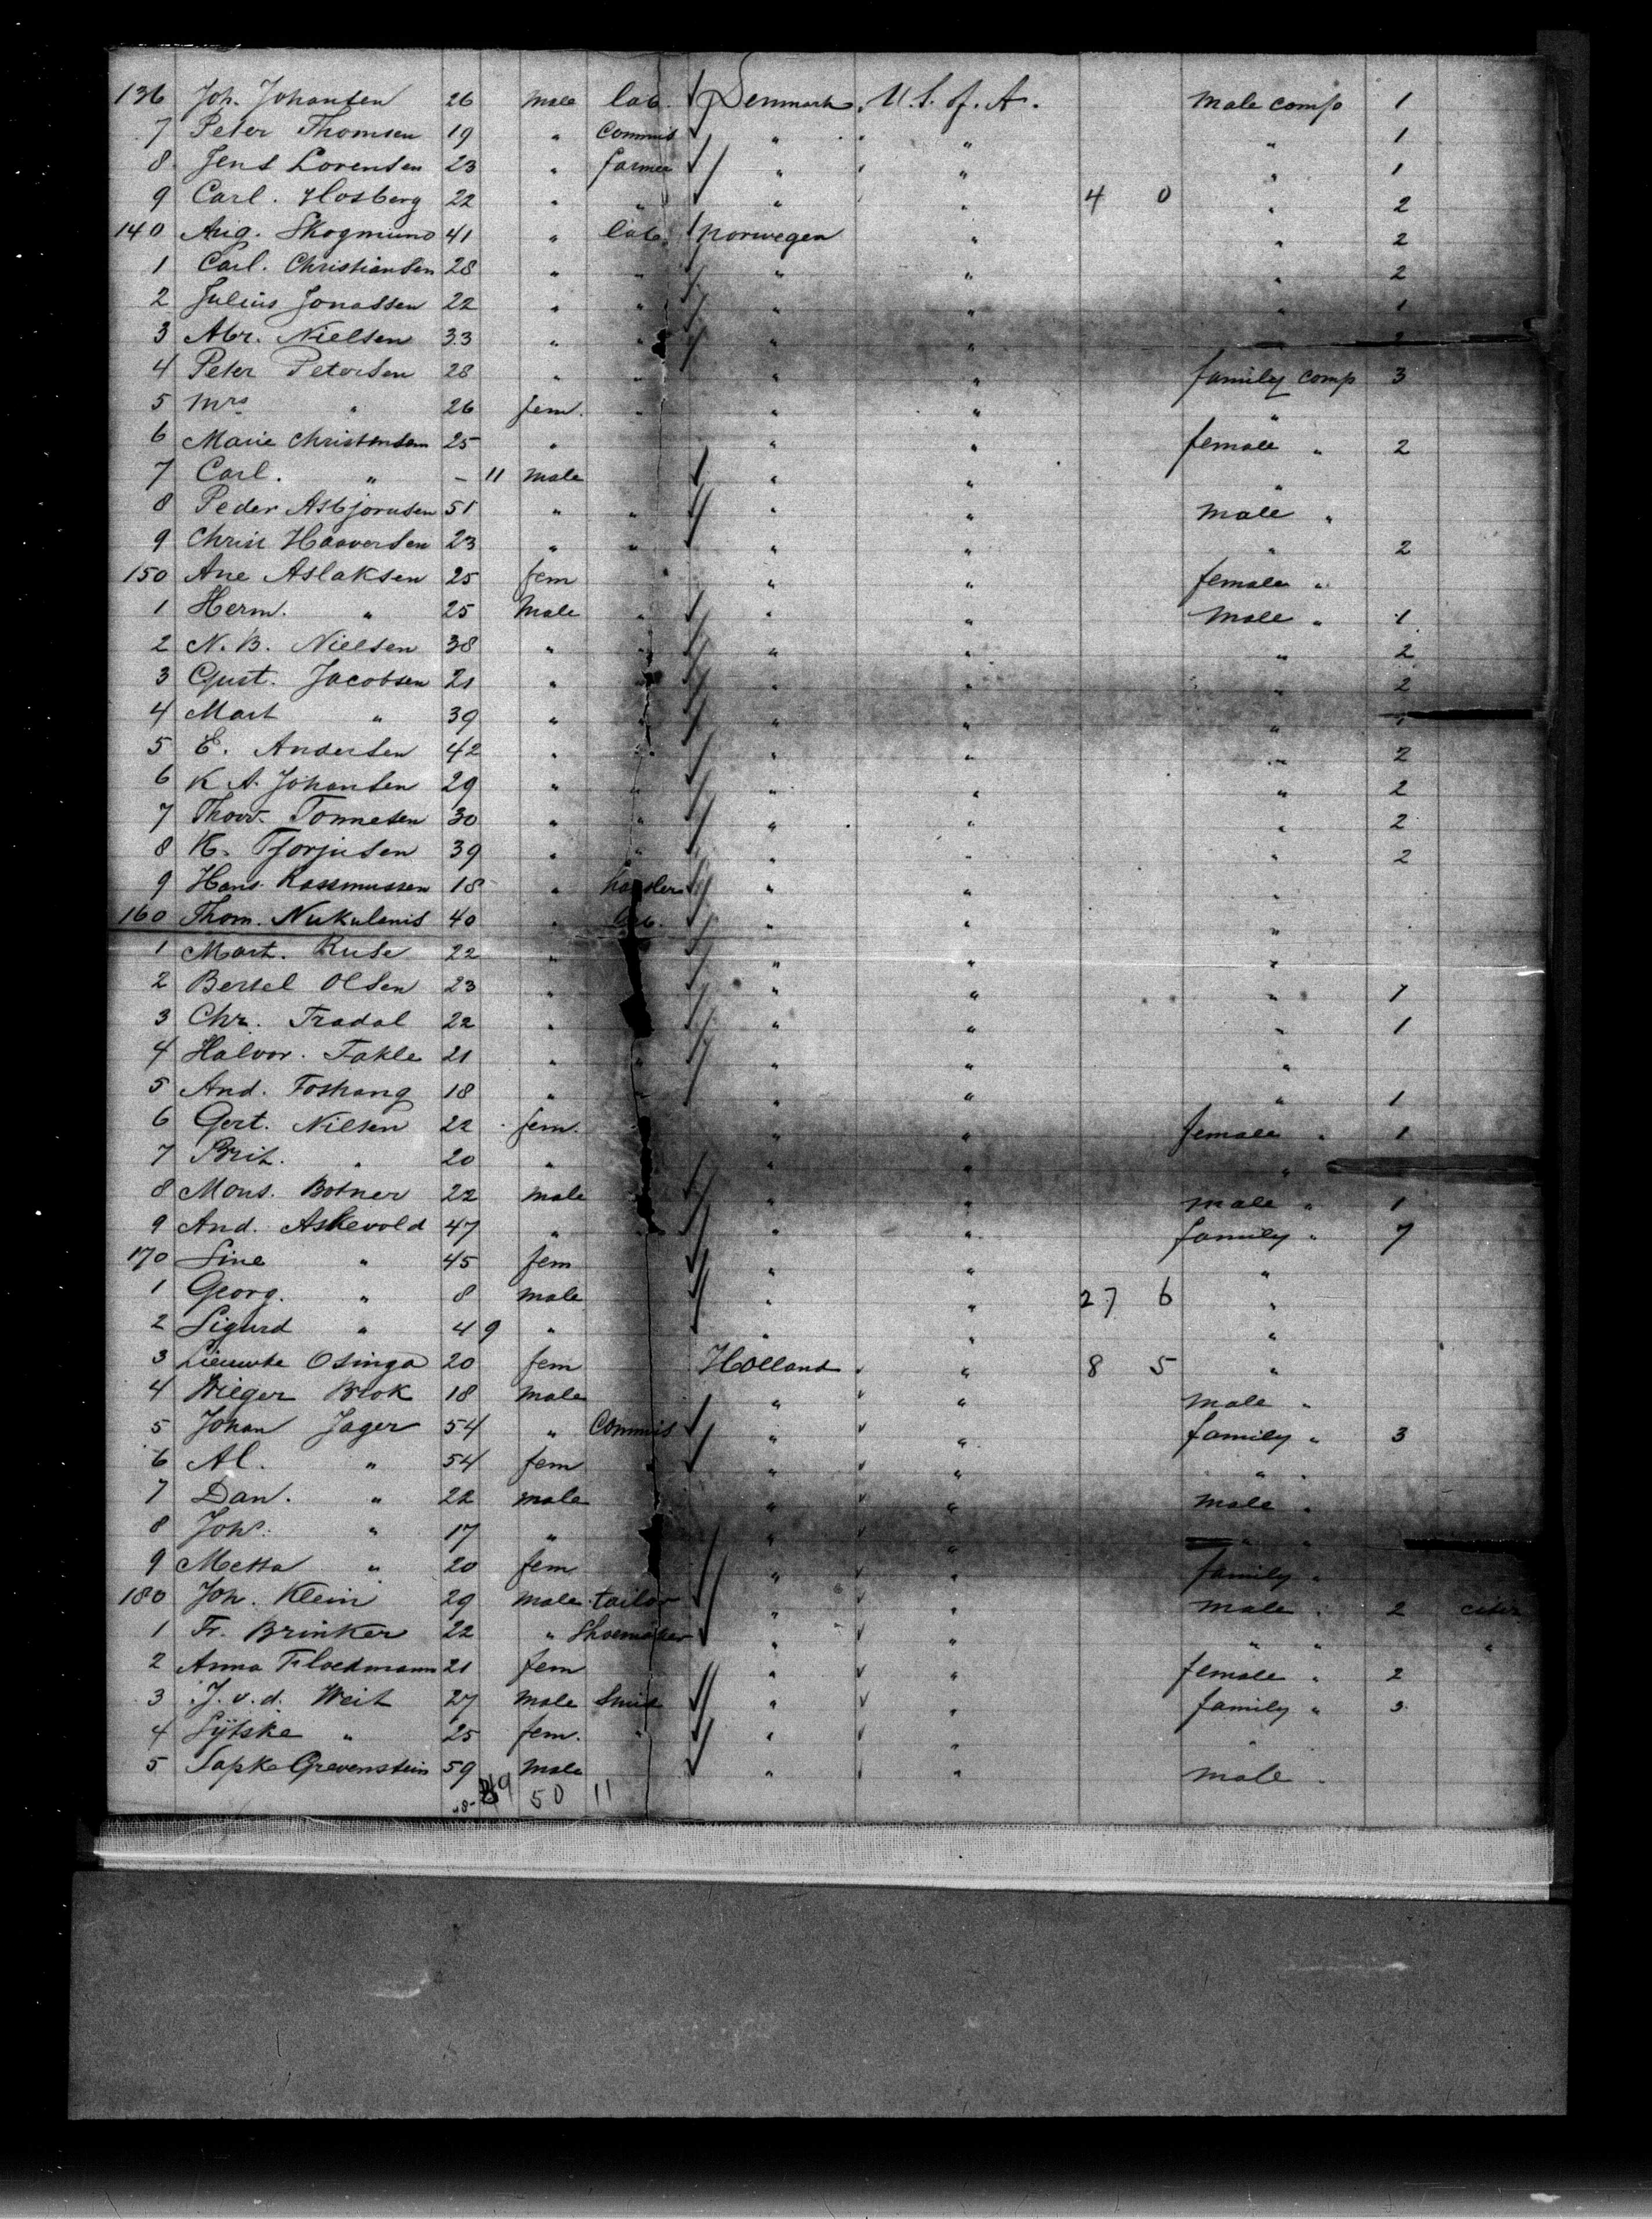 136 Joh. Johansen 26 male lab. Denmark U.S. of. A. male comp 1
7 Peter Thomsen 19 " Commis " " " 1
8 Jens Lorensen 23 " farmer " " " 1
9 Carl. Hosberg 22 " " " " 4 0 " 2
140 Aug. Skogmund 41 " lab. norwegen " " 2
1 Carl. Christiansen 28 " " " " " 2
2 Julius Jonassen 22 " " " " " 1
3 Abr. Nielsen 33 " " " " "
4 Peter Petersen 28 " " " " family comp 3
5 Mrs " 26 fem. " " " "
6 Marie Christensen 25 " " " female " 2
7 Carl. " - 11 male " " "
8 Peder Asbjornsen 51 " " " " male "
9 Chrisi Haaversen 23 " " " " " 2
150 Ane Aslaksen 25 fem " " female "
1 Herm. " 25 Male " " " Male " 1
2 N. B. Nielsen 38 " " " " " 2
3 Gust. Jacobsen 21 " " " " " 2
4 Mart " 39 " " " " "
5 E. Andersen 42 " " " " " 2
6 K. A. Johansen 29 " " " " " 2
7 Thorv. Tonnesen 30 " " " " " 2
8 K. Tjorjusen 39 " " " " " 2
9 Hans Rassmussen 18 " " " "
160 Thom. Nukulenis 40 " lab. " " "
1 Mart. Ruse 22 " " " "
2 Bertel Olsen 23 " " " " 1
3 Chr. Tradal 22 " " " " 1
4 Halvor. Takle 21 " " " " "
5 And. Foshang 18 " " " " " 1
6 Gert. Nilsen 22 fem. " " female " 1
7 Brit. " 20 " " " "
8 Mons. Botner 22 male " " male " 1
9 And. Askevold 47 " " " family " 7
170 Line " 45 fem " " "
1 Georg. " 8 male " " 27 6 "
2 Sigurd " 4 9 " " " "
3 Lieuwke Osinga 20 fem Holland " 8 5 "
4 Wieger Brok 18 male " " male "
5 Johan Jager 54 " Commis " " family " 3
6 Al. " 54 fem " " " "
7 Dan. " 22 male " " male "
8 Joh. " 17 " " " " "
9 Metta " 20 fem " " family "
180 Joh. Klein 29 male tailor " " male " 2
1 Fr. Brinker 22 " Shoemaker " " " " "
2 Anna Floedmann 21 fem " " female " 2
3 J. v. d. Weit 27 male Smid " " family " 3
4 Sytske " 25 fem. " " " "
5 Sapke Grevenstein 59 male " " male "
49 50 11